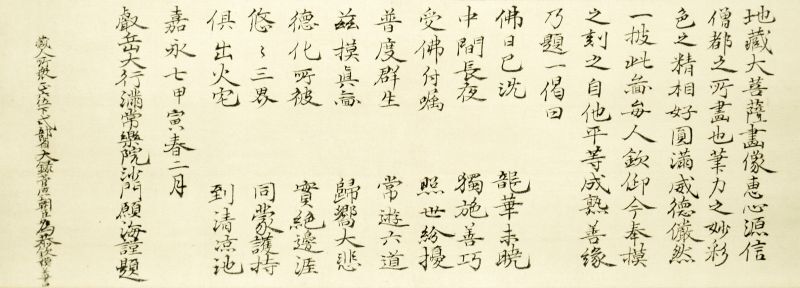 地藏大菩薩畫像恵心源信
僧都之所畫也筆力之妙彩
色之精相好圓滿威德儼然
一披此啚每人欽仰今奉摸
之刻之自他平等成熟善緣
乃題一偈曰
佛日已沈 龍華未曉
中間長夜 獨施善巧
受佛付囑 照世紛擾
普度群生 常遊六道
茲摸真啚 歸嚮大悲
德化所被 實絕邊涯
悠々三界 同蒙護持
俱出火宅 到清涼池
嘉永七甲寅春二月
叡岳大行滿常樂院沙門願海謹題
藏人所衆正六位下式部大録菅原朝臣為恭